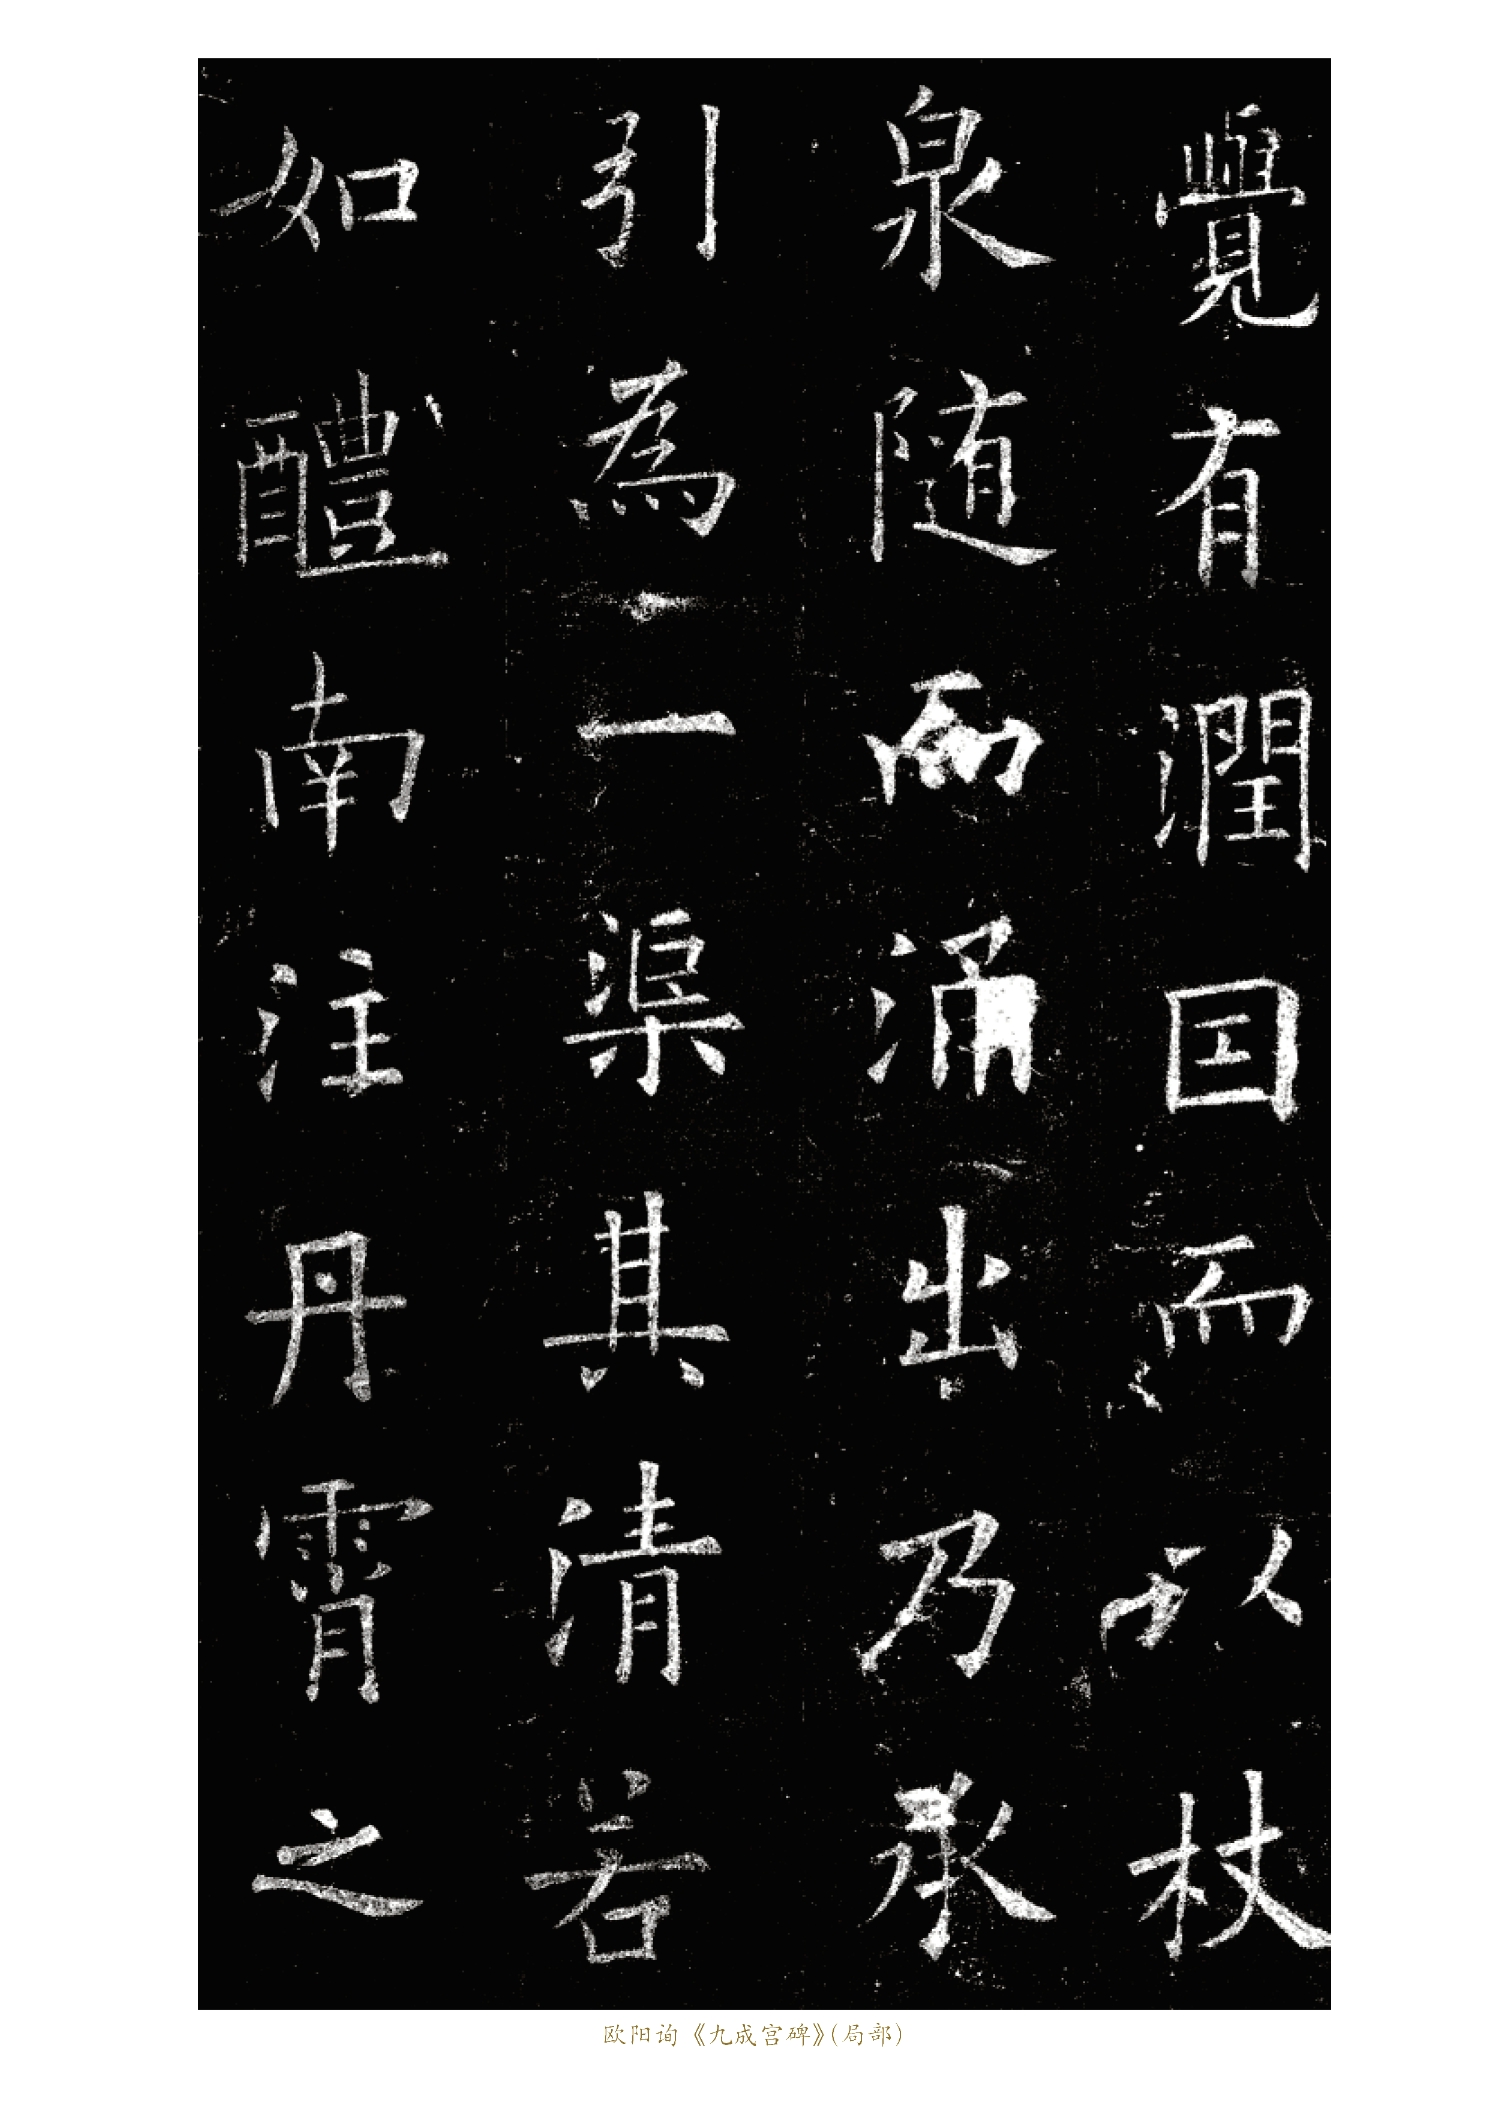 覺有潤因而以杖
泉随而涌出乃承
引為一渠其清若
如醴南注丹霄之
欧阳询《九成宫碑》（局部）